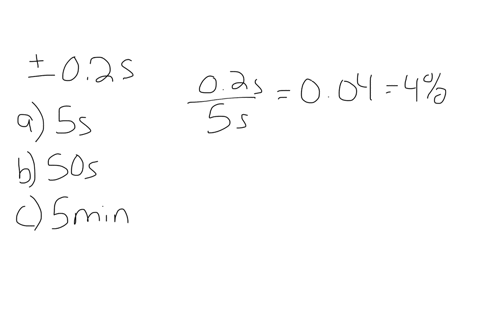 ± 0.2s
a) 5s
b) 50s
c) 5min
0.2s / 5s = 0.04 = 4%